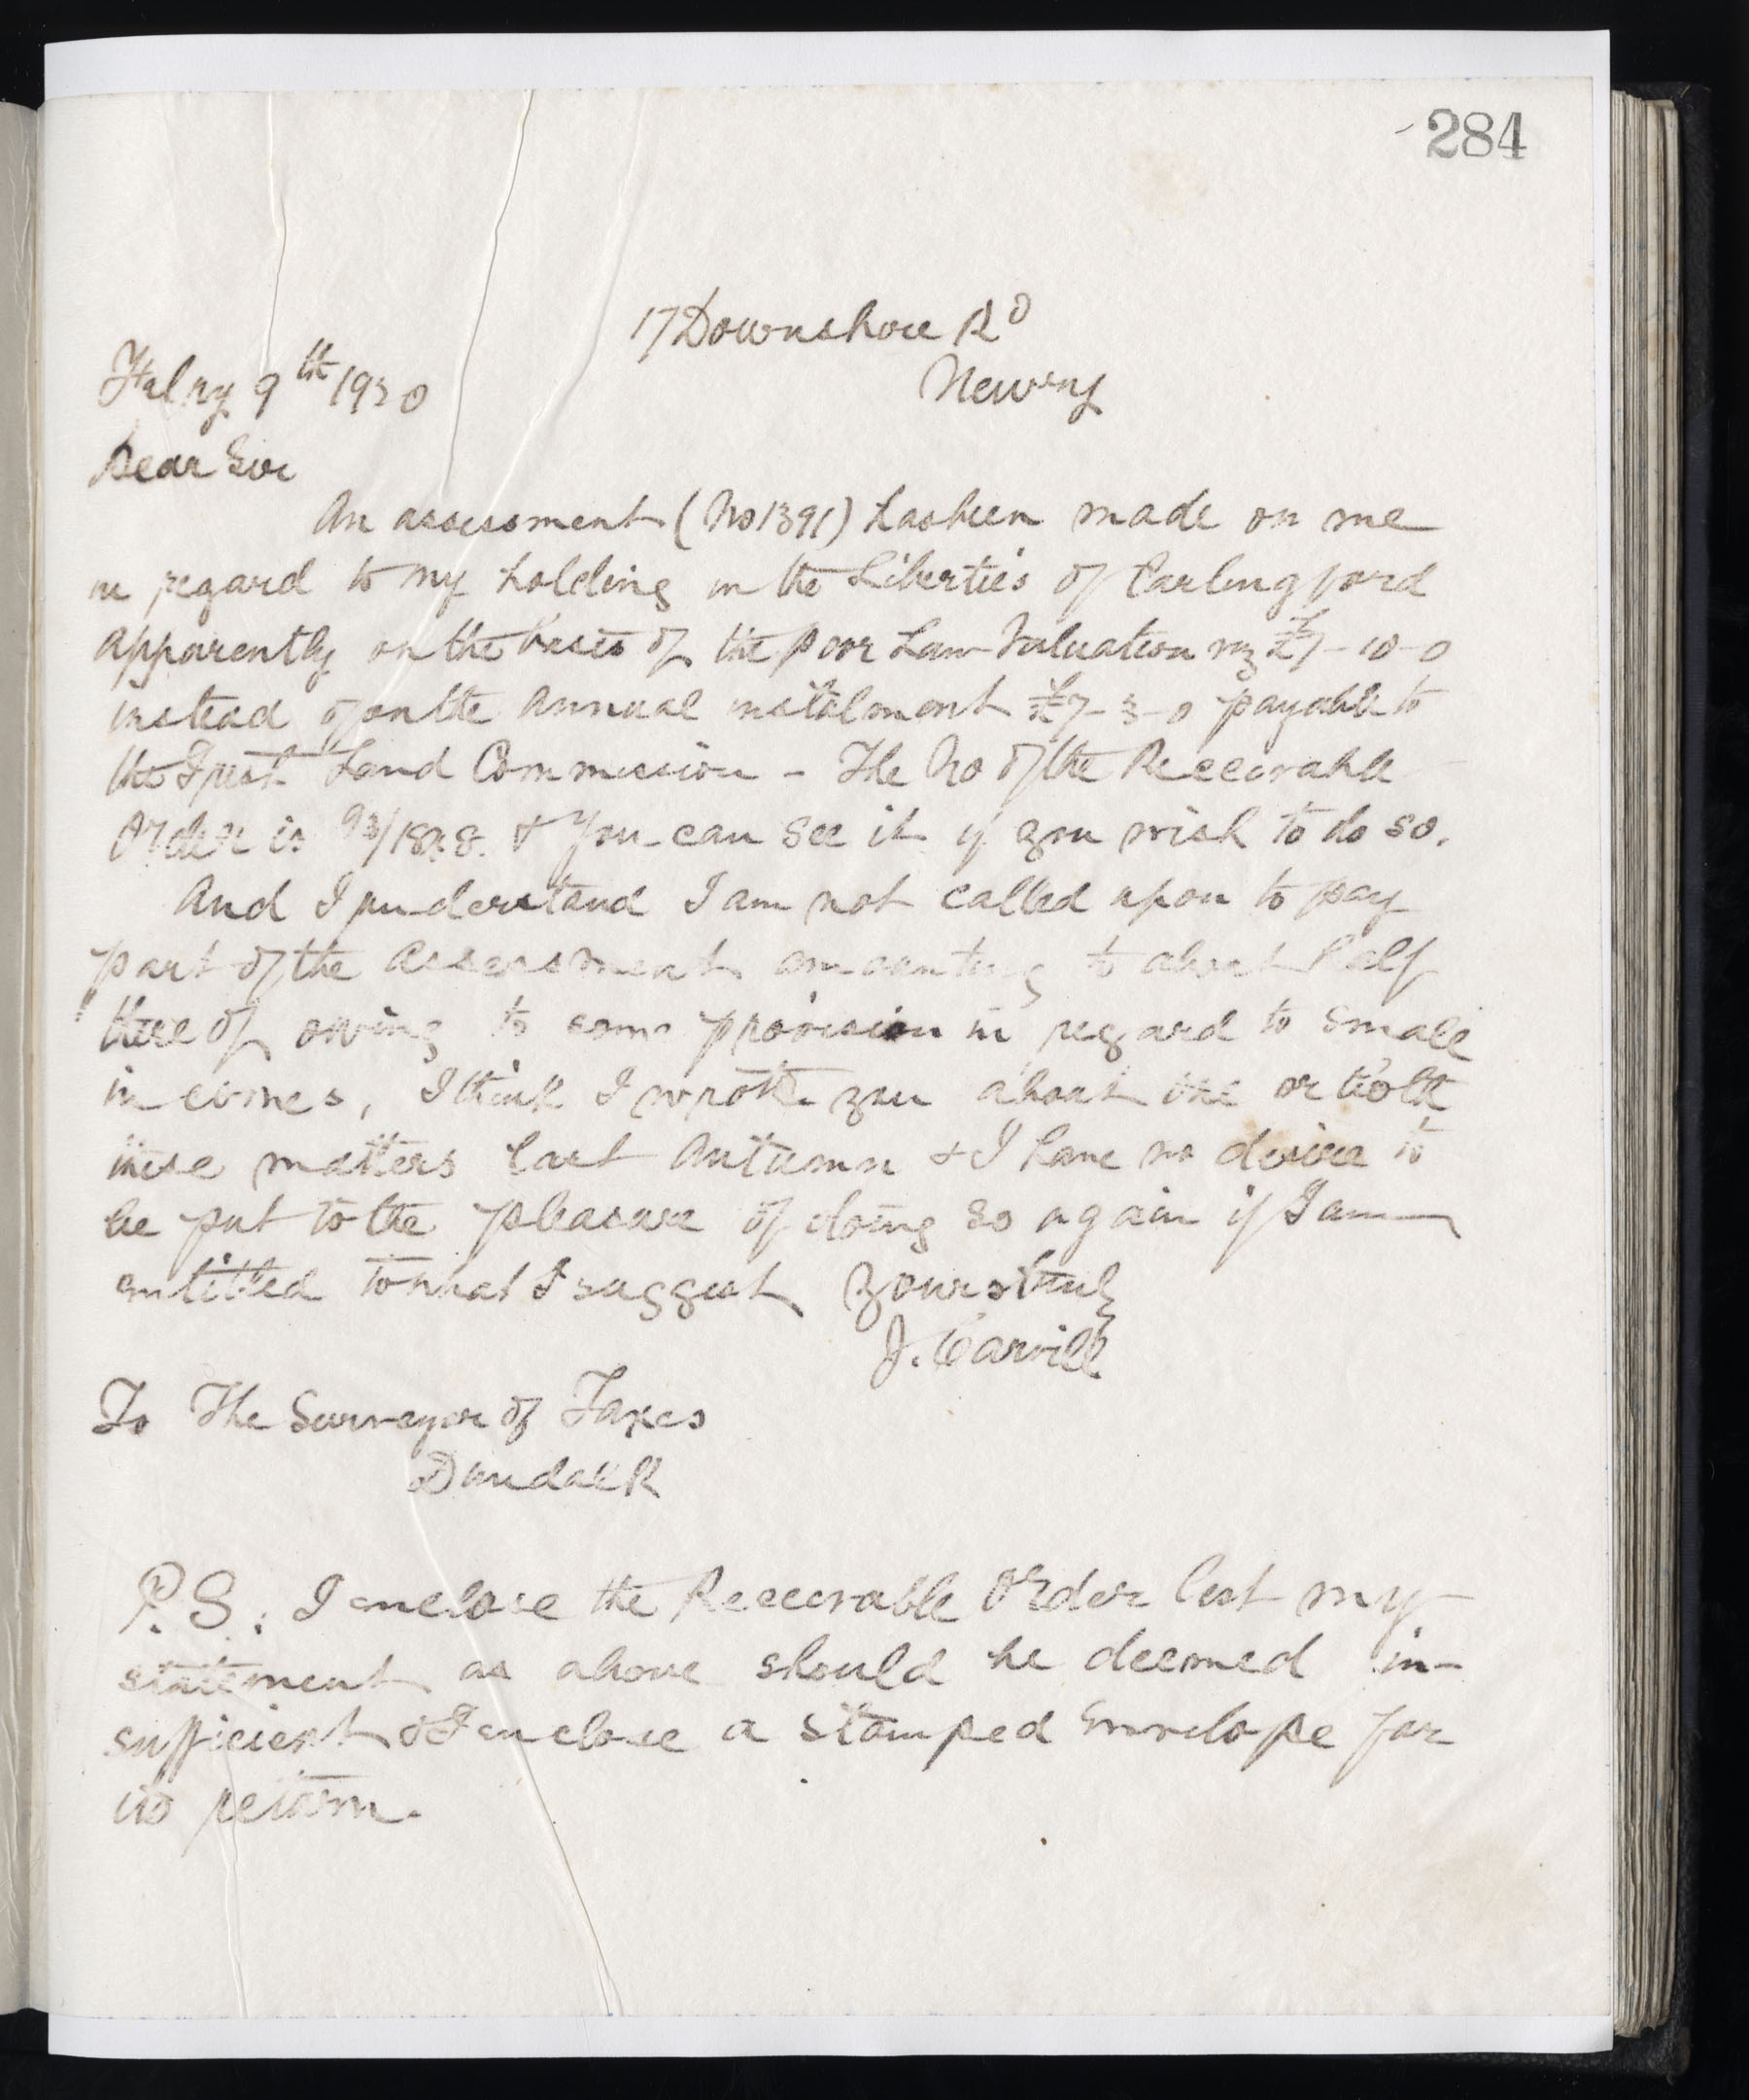 284
17 Downshire Rd
Febry 9th 1920
Newry
Dear Sir
An assessment (No 1391) has been made on me
in regard to my holding in the Liberties of Carlingford
apparently on the basis of the Poor Law Valuation viz £ - 10 - 0
instead of on the annual instalment £7 - 3 - 0 payable to
the Irish Land Commission - The No of the Receivable
Order is & you can see it if you wish to do so.
And I understand I am not called upon to pay
part of the assessment amounting to about half
thereof owing to some provision in regard to small
incomes, I think I wrote you about one or both
these matters last Autumn & I have no desire to
be put to the pleasure of doing so again if I am
entitled to what I suggest Yours truly
J. Carvill
To The Surveyor of Taxes
Dundalk
P.S. I enclose the Receivable Order lest my
statement as above should be deemed in-
sufficient & I enclose a stamped envelope for
its return.